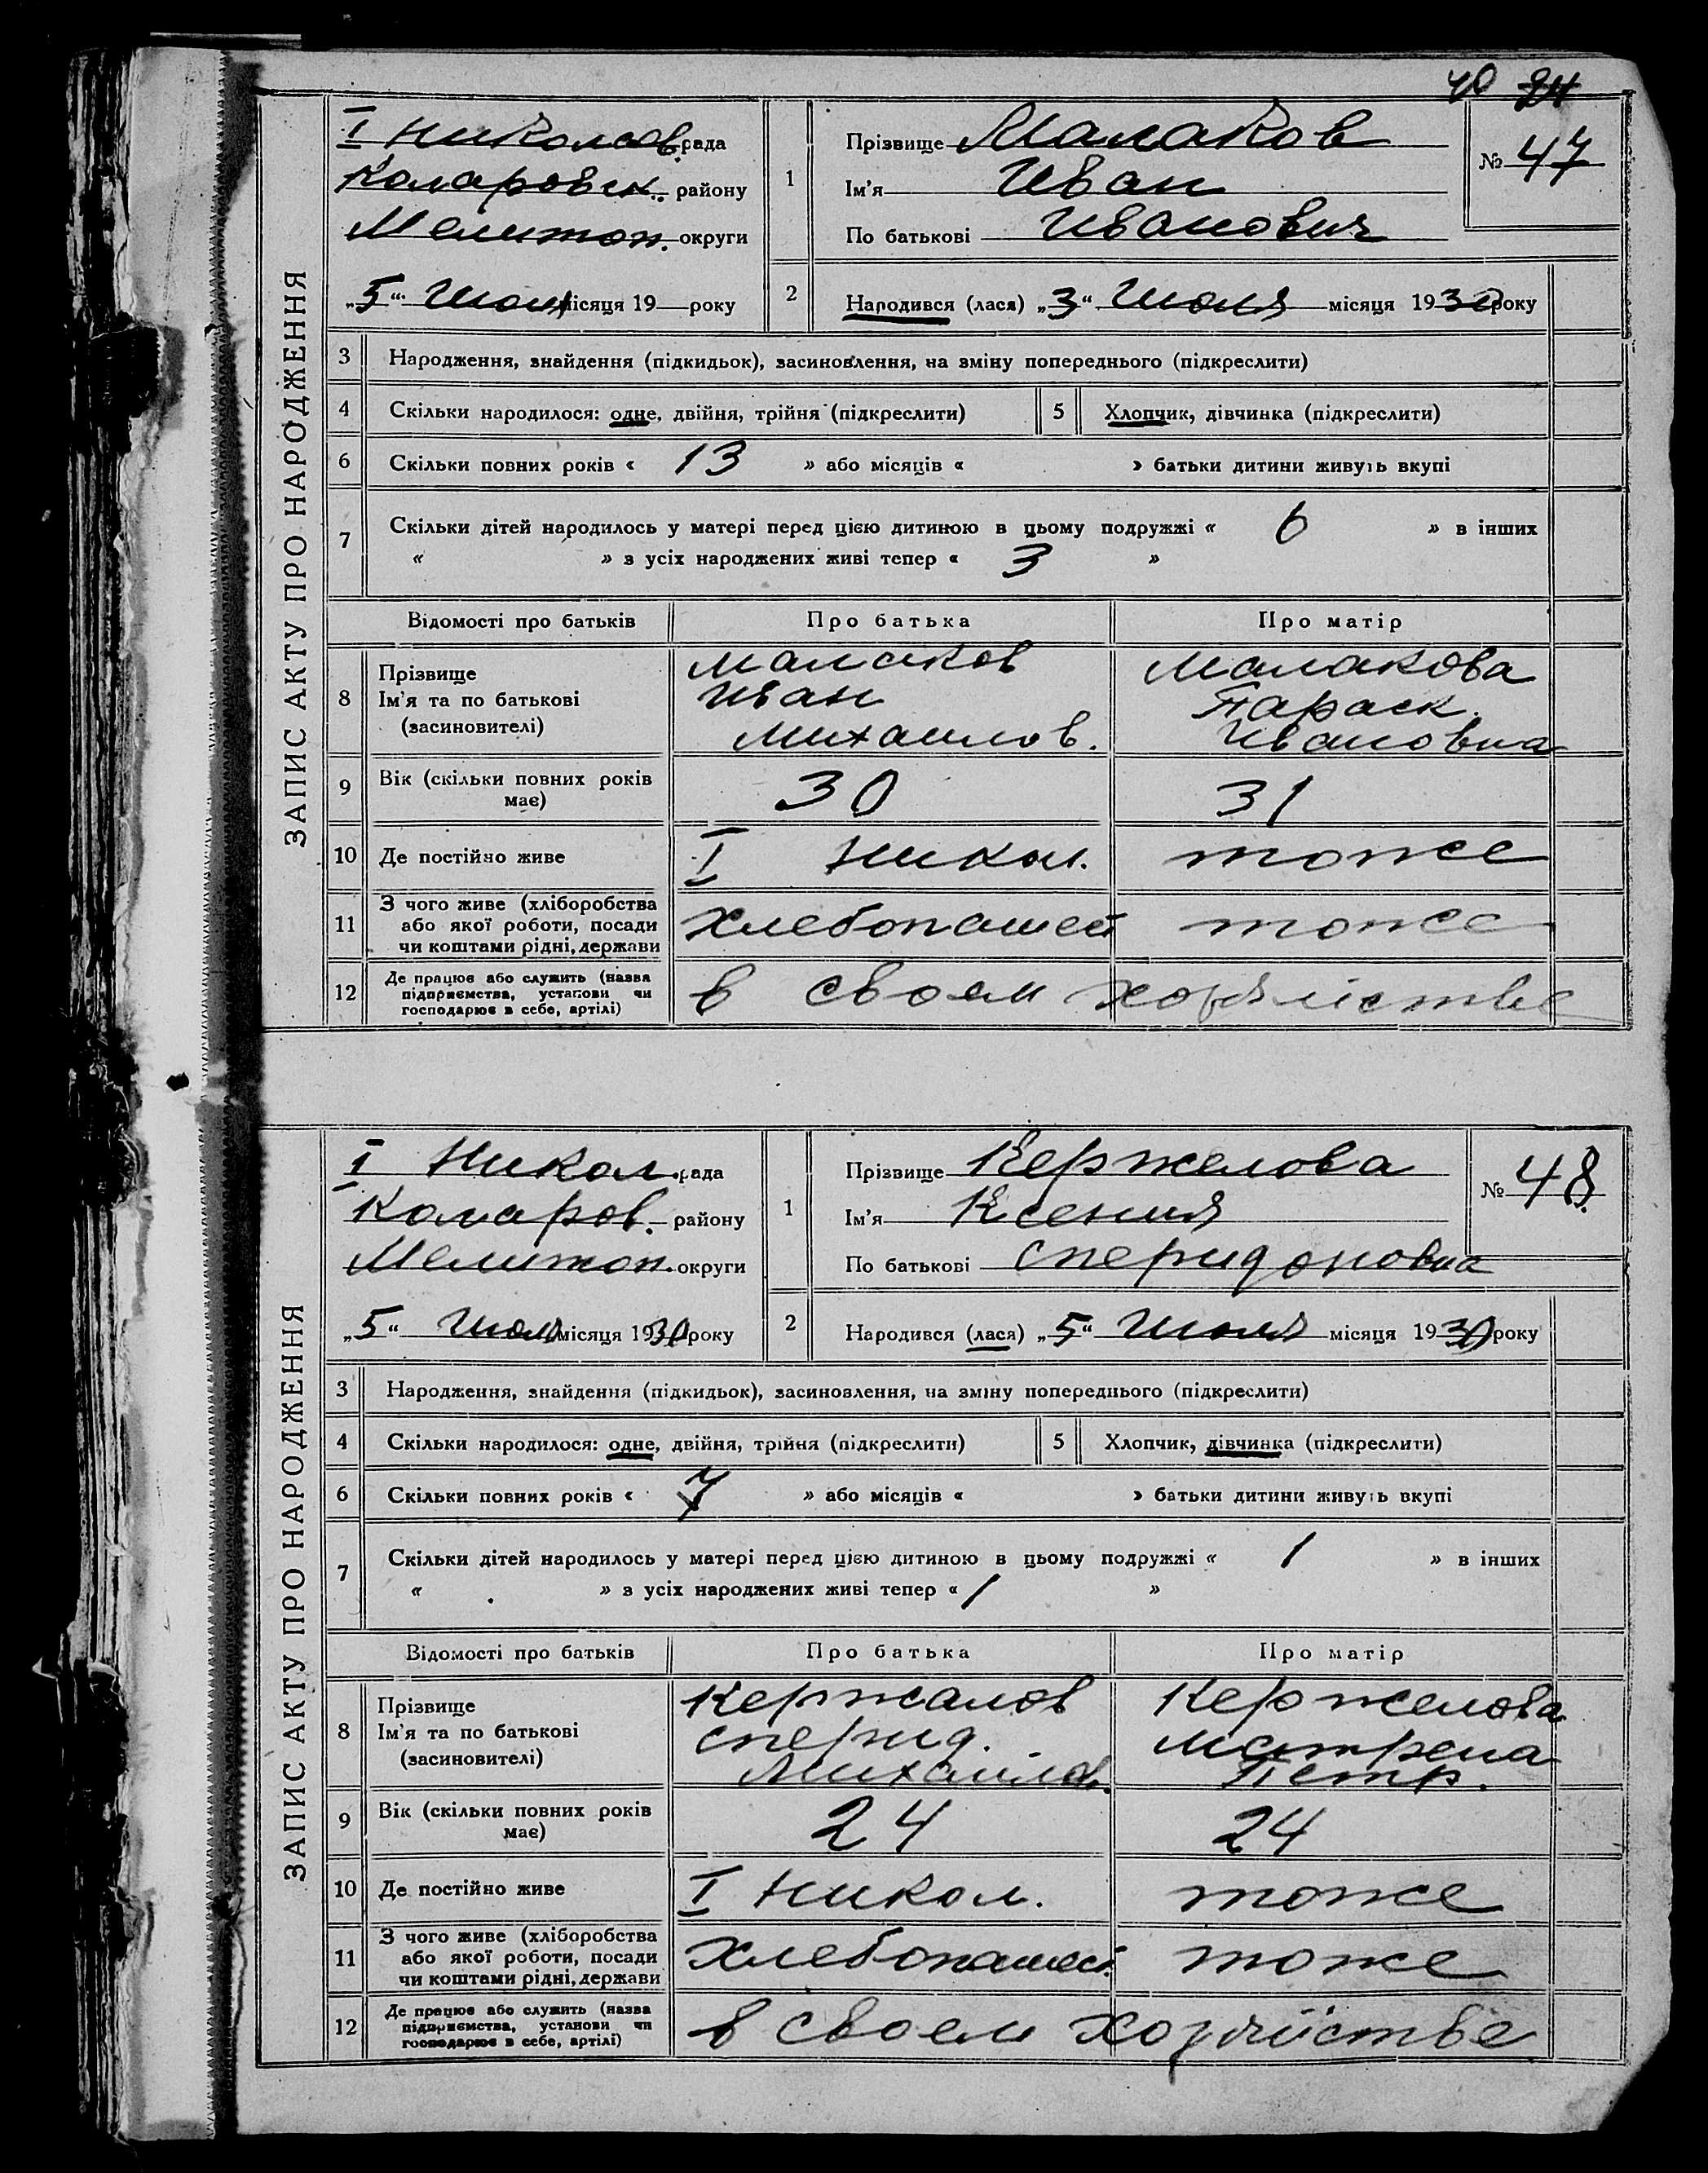 40 24
ЗАПИС АКТУ ПРО НАРОДЖЕННЯ
І Николаев. рада
Коларовск. району
Мелитоп. округи
„5“ Июля місяця 19 року
1
Прізвище Малаков
Ім'я Иван
По батькові Иванович
№ 47
2
Народився (лася) „3“ Июля місяця 1930 року
3 Народження, знайдення (підкидьок), засиновлення, на зміну попереднього (підкреслити)
4 Скільки народилося: одне, двійня, трійня (підкреслити) 5 Хлопчик, дівчинка (підкреслити)
6 Скільки повних років « 13 » або місяців « » батьки дитини живуть вкупі
7 Скільки дітей народилось у матері перед цією дитиною в цьому подружжі « 6 » в інших
« » з усіх народжених живі тепер « 3 »
Відомості про батьків Про батька Про матір
8 Прізвище
Ім'я та по батькові
(засиновителі)
Малаков
Иван
Михаилов.
Малакова
Параск.
Ивановна
9 Вік (скільки повних років
має)
30 31
10 Де постійно живе І Никол. тоже
11 З чого живе (хліборобства
або якої роботи, посади
чи коштами рідні, держави
Хлебопашест тоже
12 Де працює або служить (назва
підприємства, установи чи
господарює в себе, артілі)
в своем хозяйстве
ЗАПИС АКТУ ПРО НАРОДЖЕННЯ
І Никол. рада
Коларов. району
Мелитоп. округи
„5“ Июля місяця 1930 року
1
Прізвище Кержелова
Ім'я Ксения
По батькові Сперидоновна
№ 48
2
Народився (лася) „5“ Июля місяця 1930 року
3 Народження, знайдення (підкидьок), засиновлення, на зміну попереднього (підкреслити)
4 Скільки народилося: одне, двійня, трійня (підкреслити) 5 Хлопчик, дівчинка (підкреслити)
6 Скільки повних років « 7 » або місяців « » батьки дитини живуть вкупі
7 Скільки дітей народилось у матері перед цією дитиною в цьому подружжі « 1 » в інших
« » з усіх народжених живі тепер « 1 »
Відомості про батьків Про батька Про матір
8 Прізвище
Ім'я та по батькові
(засиновителі)
Кержалов
Сперид.
Михайлов.
Кержелова
Матрена
Петр.
9 Вік (скільки повних років
має)
24 24
10 Де постійно живе І Никол. тоже
11 З чого живе (хліборобства
або якої роботи, посади
чи коштами рідні, держави
Хлебопашест. тоже
12 Де працює або служить (назва
підприємства, установи чи
господарює в себе, артілі)
в своем хозяйстве